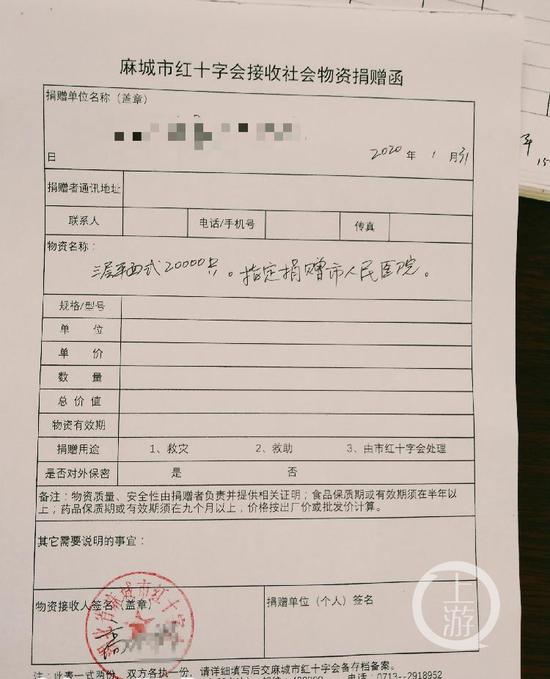 麻城市红十字会接收社会物资捐赠函
捐赠单位名称（盖章）
2020 年 1 月 31
日
捐赠者通讯地址
联系人 电话/手机号 传真
物资名称：
20000只。指定捐赠市人民医院。
规格/型号
单 位
单 价
数 量
总 价 值
物资有效期
捐赠用途 1、救灾 2、救助 3、由市红十字会处理
是否对外保密 是 否
备注：物资质量、安全性由捐赠者负责并提供相关证明；食品保质期或有效期须在半年以
上；药品保质期或有效期须在九个月以上，价格按出厂价或批发价计算。
其它需要说明的事宜：
物资接收人签名（盖章） 捐赠单位（个人）签名
省麻城市红十字
注：此表一式两份，双方各执一份，请详细填写后交麻城市红十字会备存档备案。
0713--2918952
上游
年
15